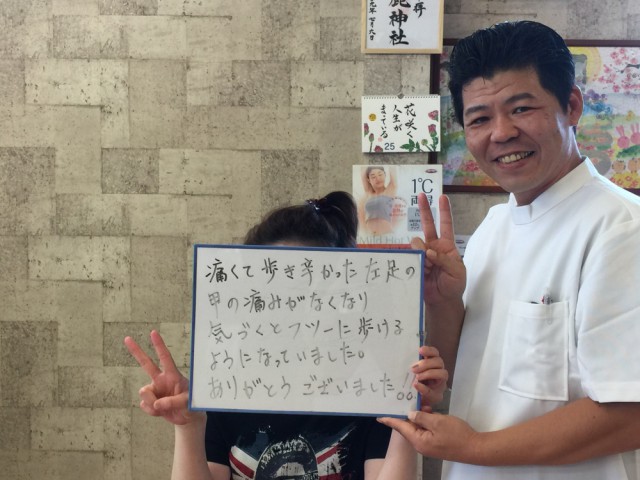 鹿神社
花咲く
人生が
まっている
25
1℃
痛くて歩き辛かった左足の
甲の痛みがなくなり
気づくとフツーに歩ける
ようになっていました。
ありがとうございました!!